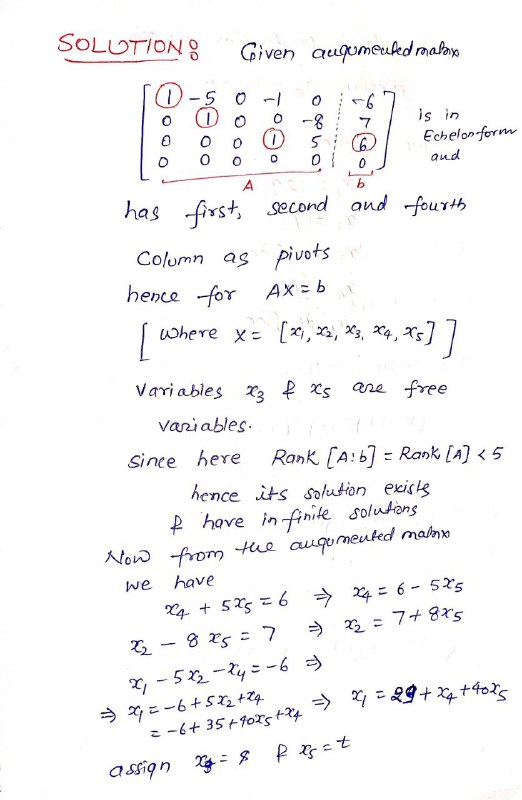 SOLUTION:
Given augumented matrix
1 -5 0 -1 0 -6
0 1 0 0 -8 7
0 0 0 1 5 6
0 0 0 0 0 0
is in
Echelon form
and
A b
has first, second and fourth
Column as pivots
hence for AX = b
[ where X = [x₁, x₂, x₃, x₄, x₅] ]
Variables x₃ & x₅ are free
variables.
Since here Rank [A:b] = Rank [A] < 5
hence its solution exists
& have infinite solutions
Now from the augumented matrix
we have
x₄ + 5x₅ = 6 ⇒ x₄ = 6 - 5x₅
x₂ - 8x₅ = 7 ⇒ x₂ = 7 + 8x₅
x₁ - 5x₂ - x₄ = -6 ⇒
⇒ x₁ = -6 + 5x₂ + x₄ ⇒ x₁ = 29 + x₄ + 40x₅
= -6 + 35 + 40x₅ + x₄
assign x₃ = s & x₅ = t